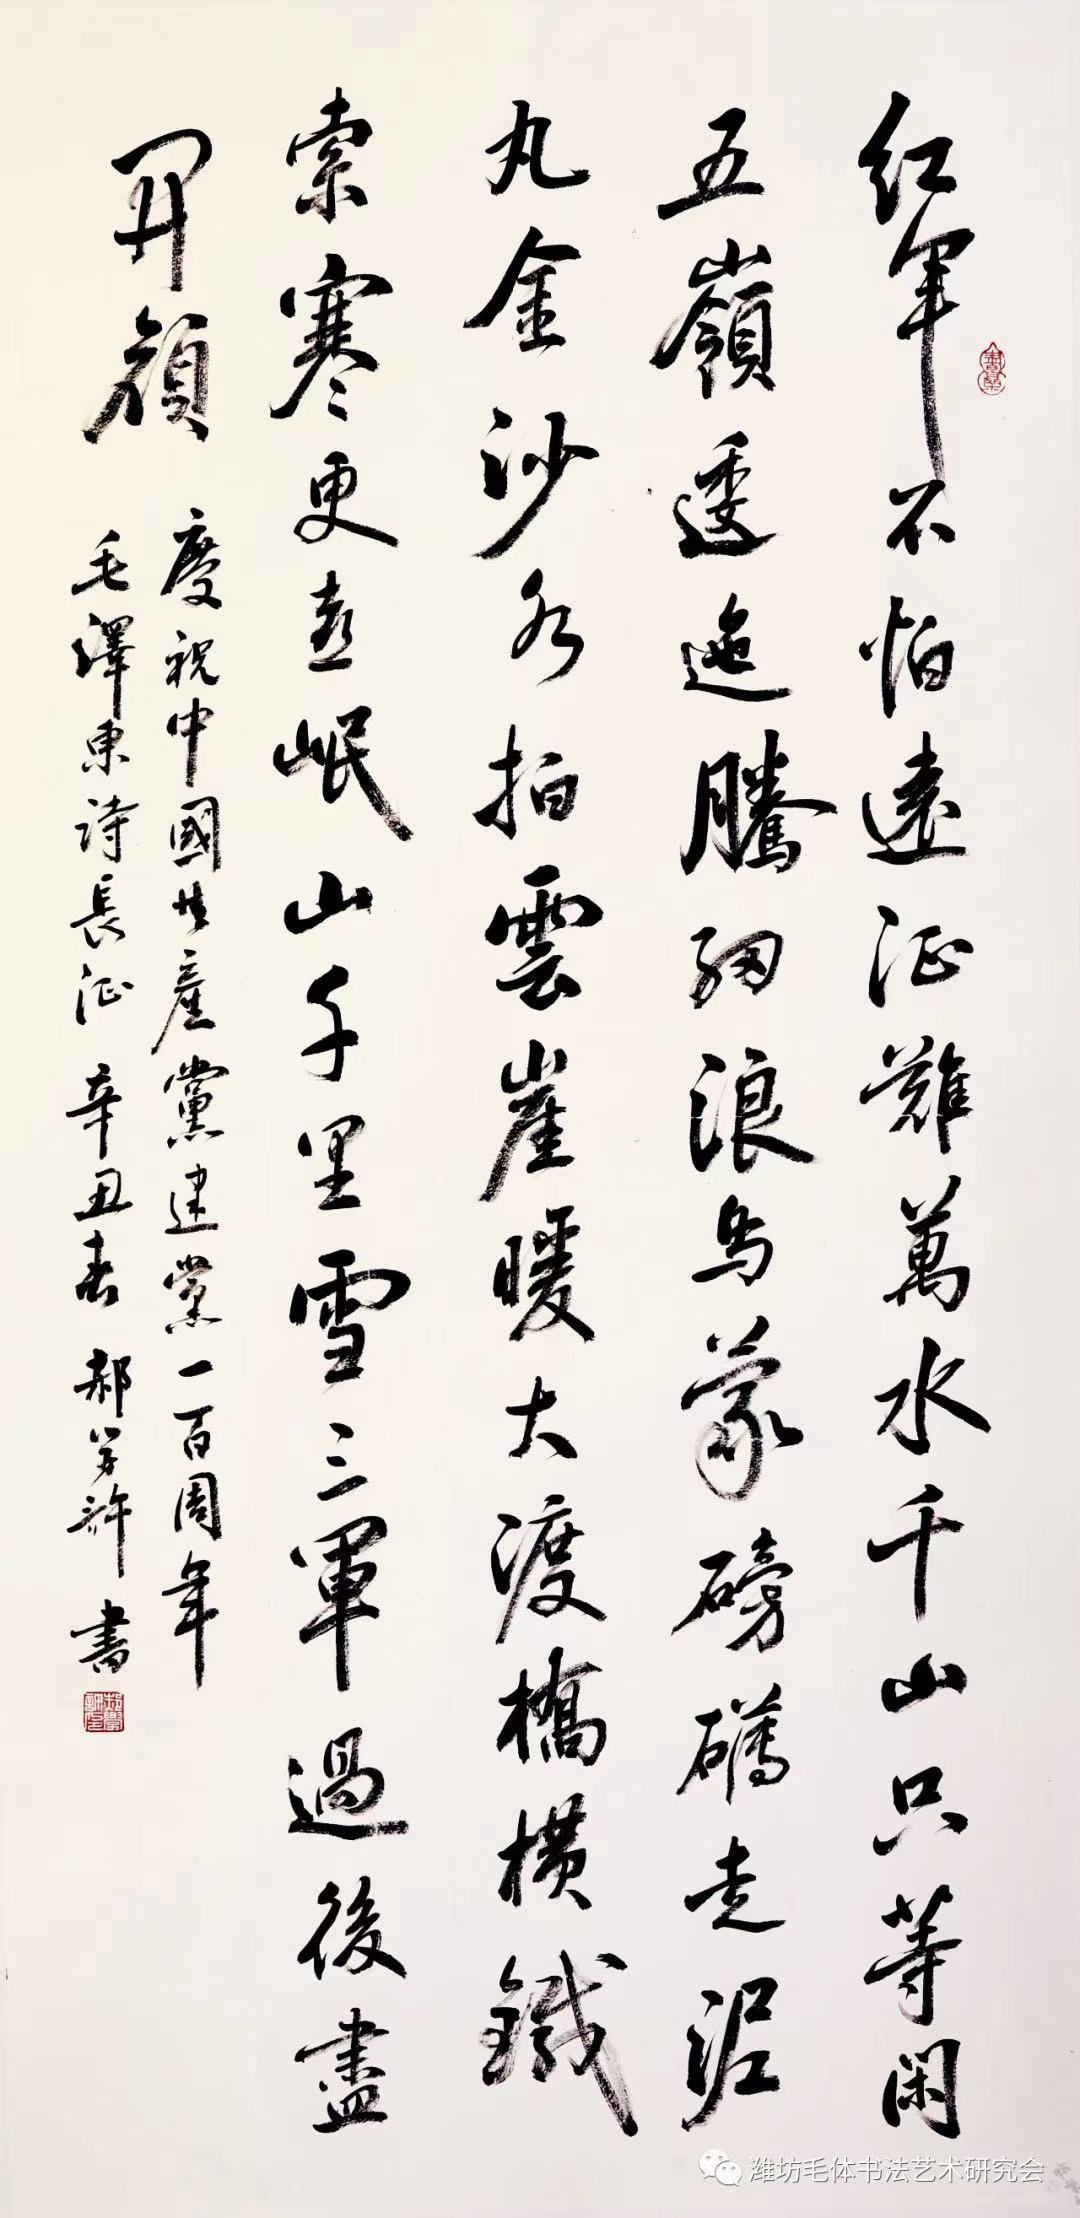 红军不怕遠征難萬水千山只等闲
五嶺逶迤騰細浪烏蒙磅礴走泥
丸金沙水拍雲崖暖大渡橋横鐵
索寒更喜岷山千里雪三軍過後盡
開顔
慶祝中國共產黨建黨一百周年
毛澤東詩長征 辛丑春 郝 書
潍坊毛体书法艺术研究会